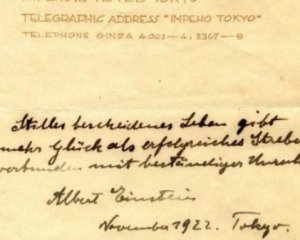 IMPERIAL HOTEL TOKYO
TELEGRAPHIC ADDRESS "IMPEHO TOKYO"
TELEPHONE GINZA 4001–4, 3367–9
Stilles bescheidenes Leben gibt
mehr Glück als erfolgreiches Streben
verbunden mit beständiger Unruhe
Albert Einstein
November 1922. Tokyo.